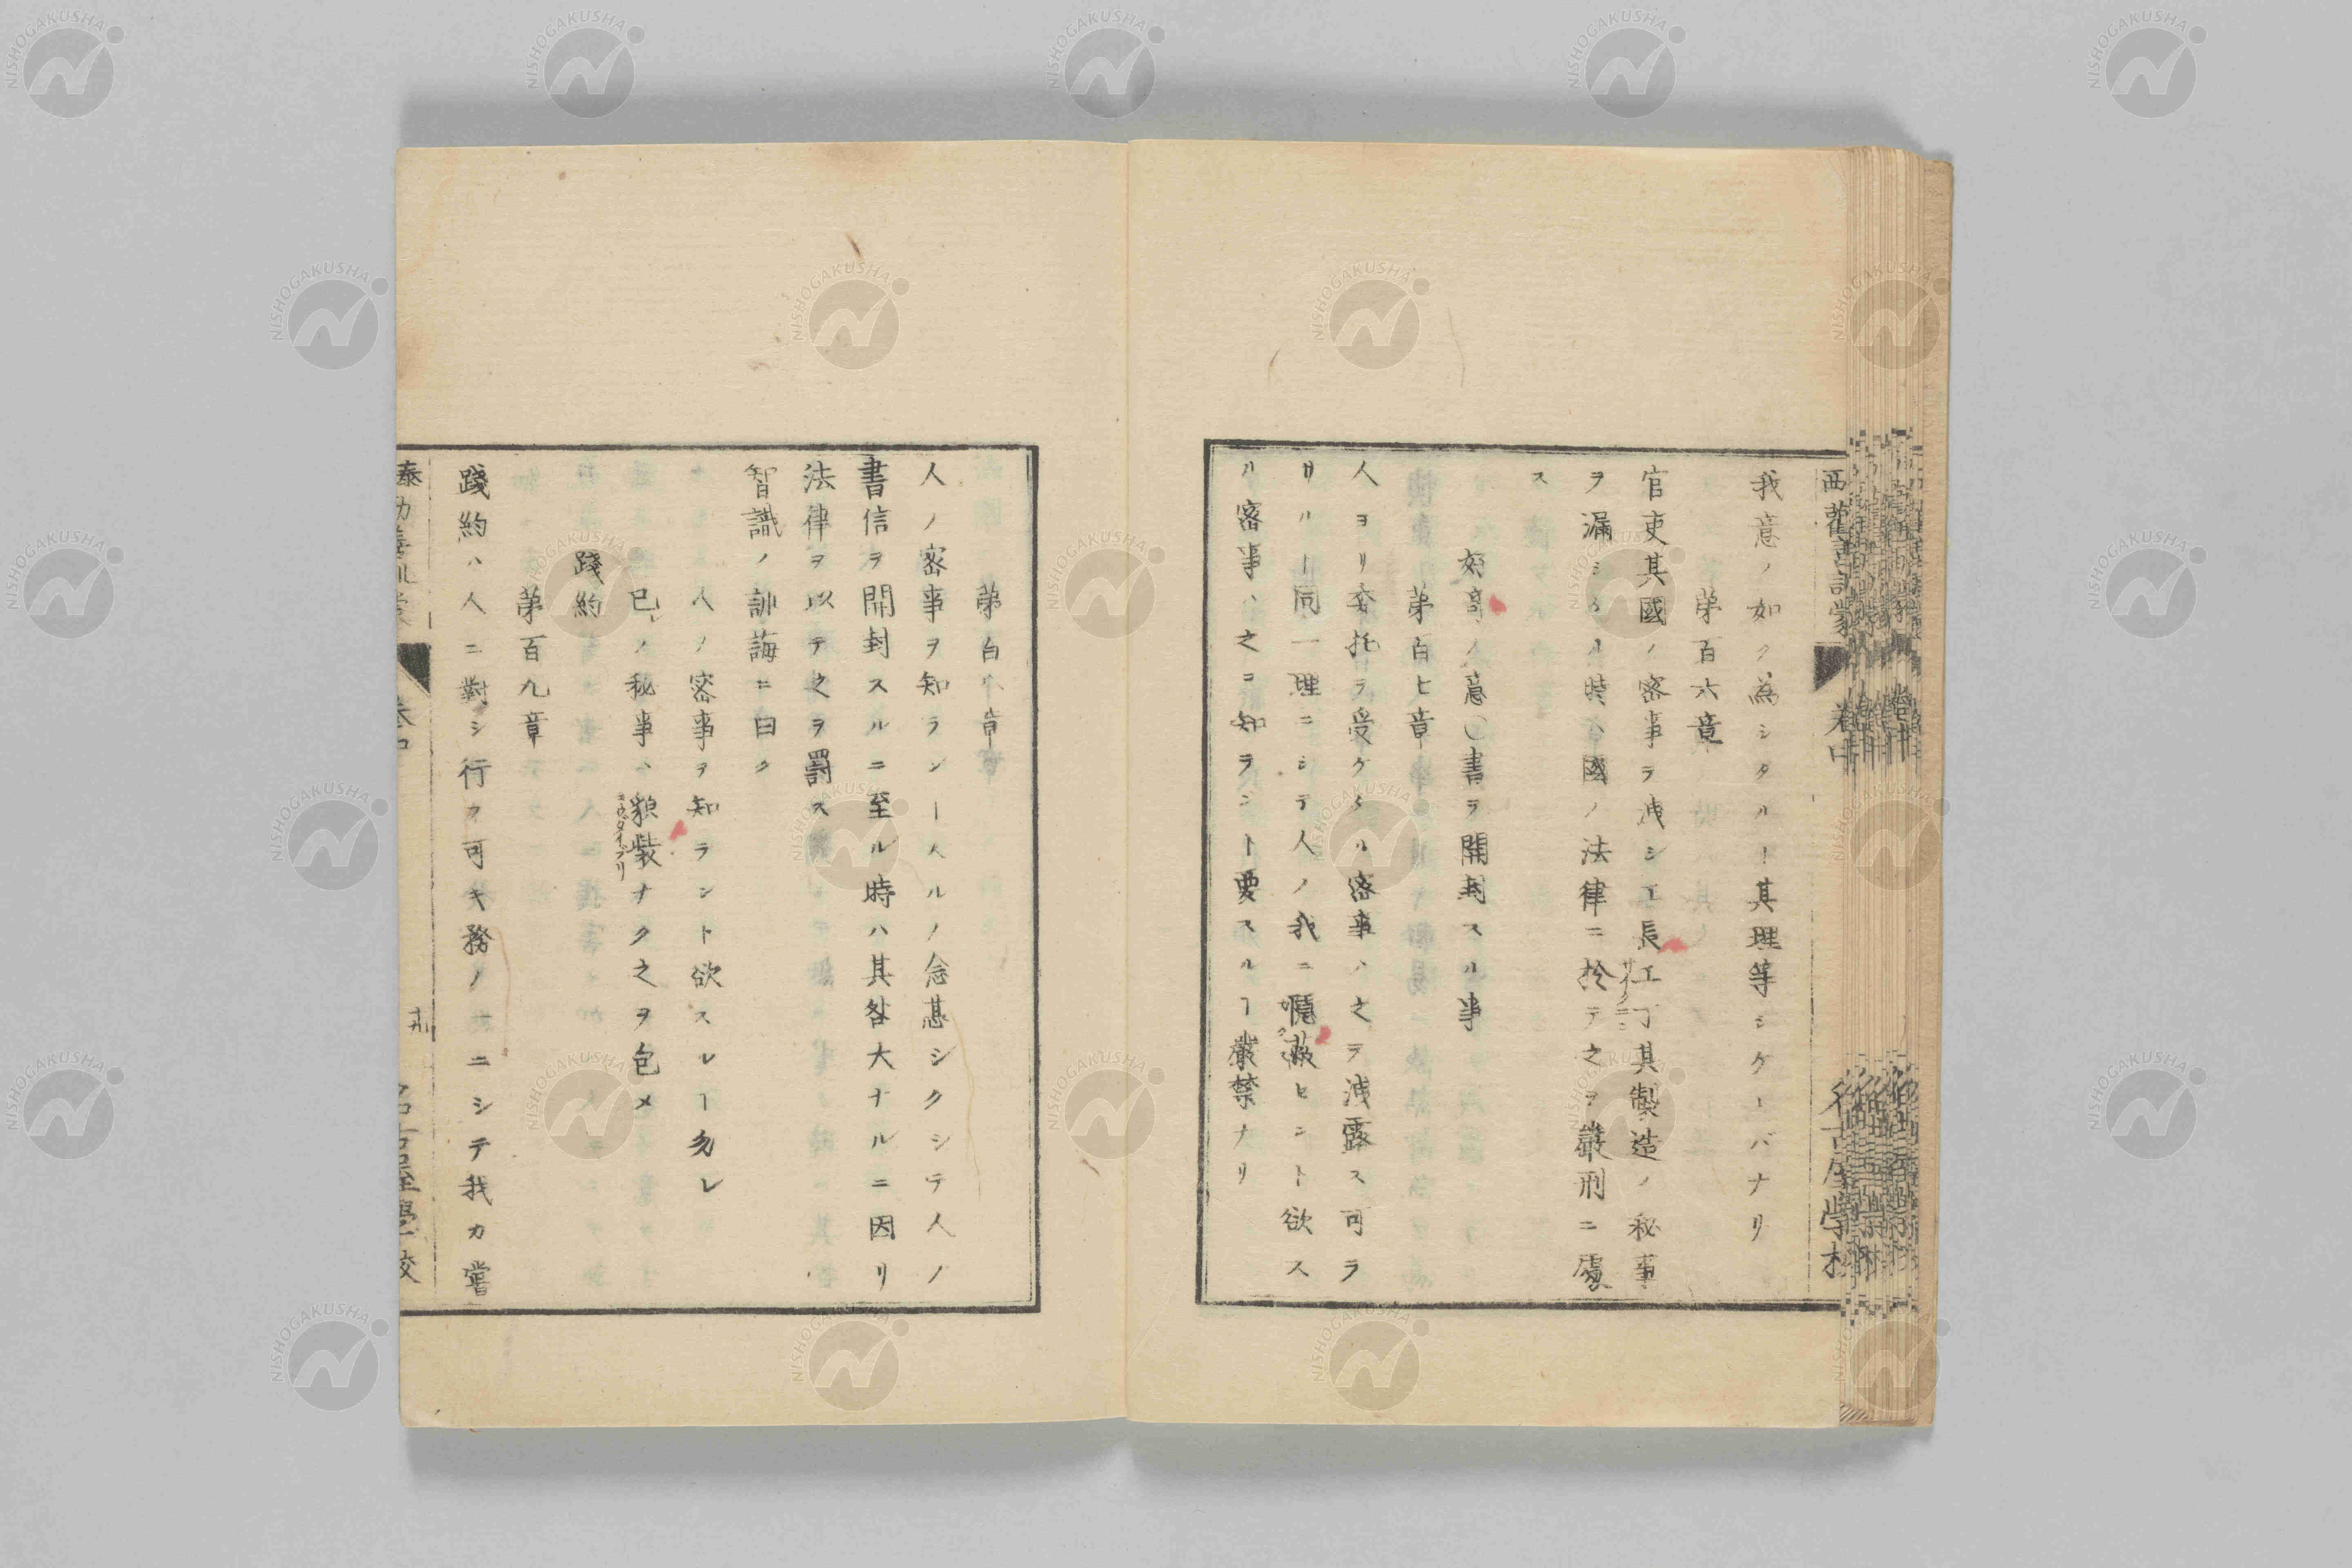 我意ノ如ク為シタルヿ其理等シケーバナリ
第百六章
官吏其國ノ密事ヲ洩シ工長工丁其製造ノ秘事
ヲ漏シタル時ハ國ノ法律ニ於テ之ヲ嚴刑ニ處
ス
好奇ノ意〇書ヲ開封スル事
第百七章
人ヨリ委托ヲ受ケタル密事ハ之ヲ洩露ス可ラ
サルヿ同一理ニシテ人ノ我ニ隠蔽セント欲ス
ル密事ハ之ヲ知ランヿ要スルヿ嚴禁ナリ
第百八章
人ノ密事ヲ知ランヿスルノ念甚シクシテ人ノ
書信ヲ開封スルニ至ル時ハ其咎大ナルニ因リ
法律ヲ以テ之ヲ罰ス
智識ノ訓誨ニ曰ク
人ノ密事ヲ知ラント欲スレヿ勿レ
己レノ秘事ハ貌装ナク之ヲ包メ
踐約
第百九章
踐約ハ人ニ對シ行フ可キ務ノ一ニシテ我カ嘗
卷中
名古屋學校
NISHOGAKUSHA